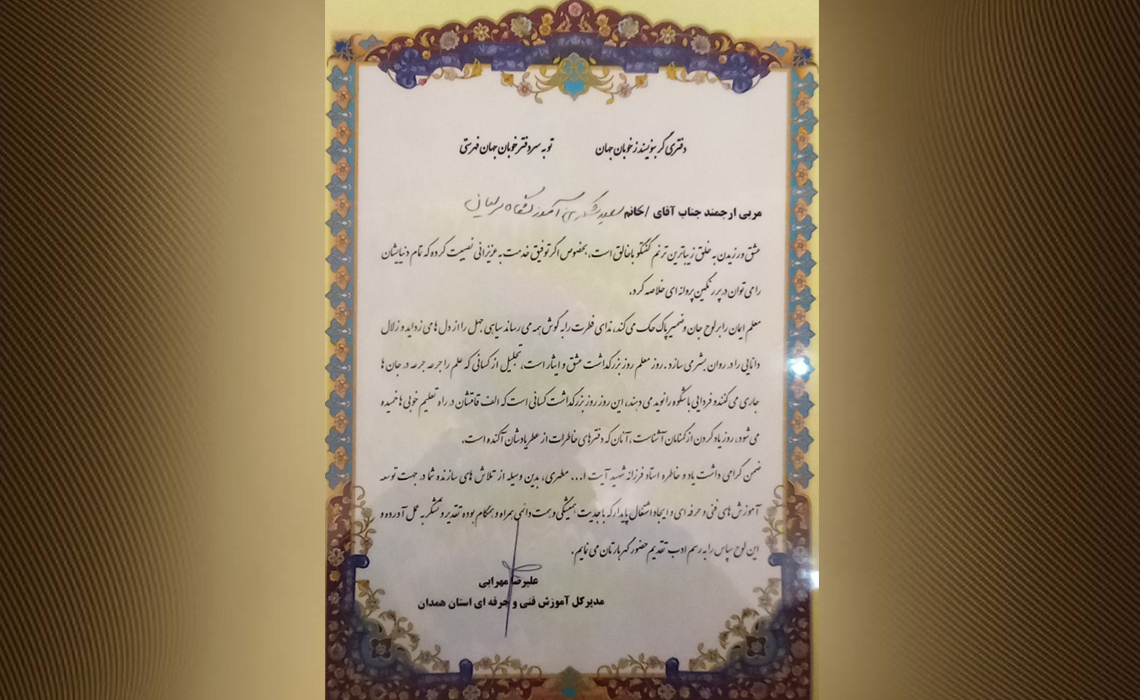 دفتری گر بنویسند ز خوبان جهان تو به سر دفتر خوبان جهان فهرستی
مربی ارجمند جناب آقای / خانم سعید
عشق ورزیدن به خلق زیباترین ترنم گفتگو با خالق است، بخصوص اگر توفیق خدمت به عزیزانی نصیبت کرده که تمام دنیایشان
را می توان در پر رنگین پروانه ای خلاصه کرد.
معلم ایمان را بر لوح جان و ضمیر پاک حک می کند، ندای فطرت را به گوش همه می رساند سیاهی جهل را از دل های زداید و زلال
دانایی را در روان بشر می سازد. روز معلم روز بزرگداشت عشق و ایثار است، تجلیل از کسانی که علم را جرعه جرعه در جان ها
جاری می کنند و فردایی باشکوه را نوید می دهند، این روز روز بزرگداشت کسانی است که الف قامتشان در راه تعلیم خوبی ها خمیده
می شود، روز یاد کردن از گمنامان آشناست، آنان که دفترهای خاطرات از عطر یادشان آکنده است.
ضمن گرامی داشت یاد و خاطره استاد فرزانه شهید آیت ا... مطهری، بدین وسیله از تلاش های سازنده شما در جهت توسعه
آموزش های فنی و حرفه ای و ایجاد اشتغال پایدار که با جدیت همیشگی و همت دائمی همراه و همگام بوده تقدیر و تشکر به عمل آورده و
این لوح سپاس را به رسم ادب تقدیم حضور گهربارتان می نمایم.
علیرضا مهرابی
مدیرکل آموزش فنی و حرفه ای استان همدان